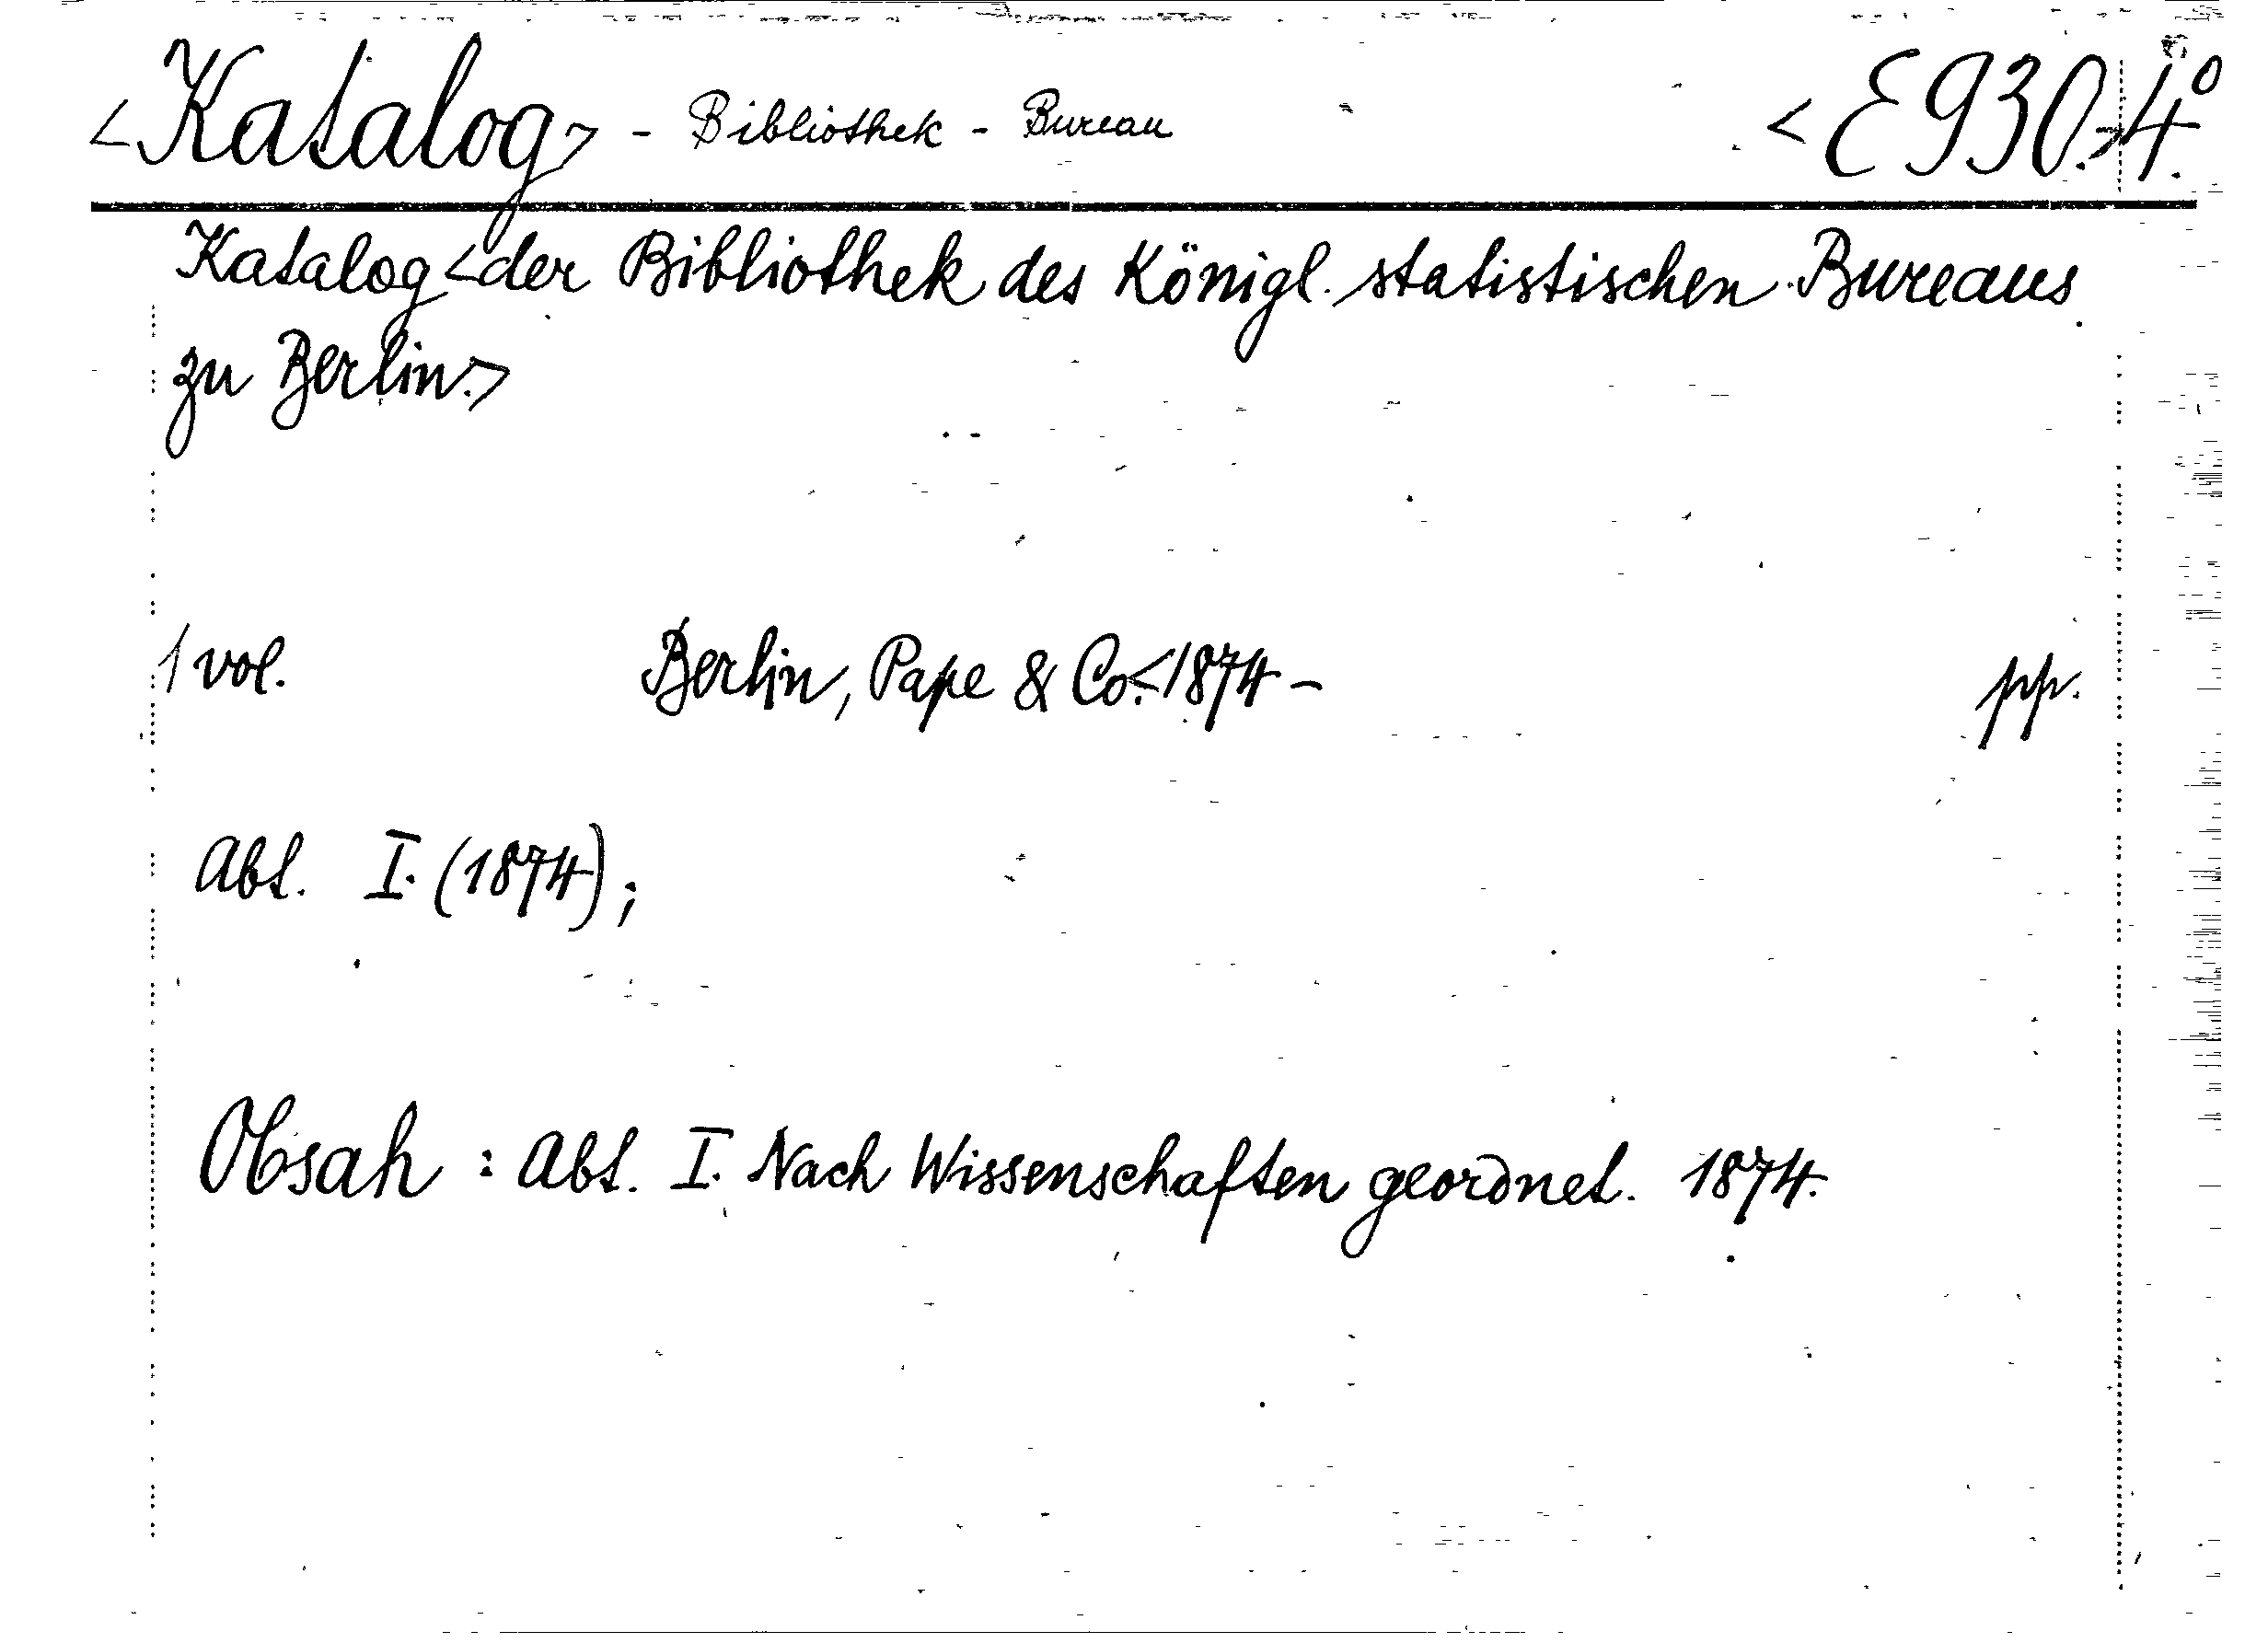 <Katalog> - Bibliothek - Bureau <E 930.> 4.º
Katalog <der Bibliothek des Königl. statistischen Bureaus
zu Berlin.>
1 vol. Berlin, Pape & Co. <1874 - pp.
Abt. I. (1874);
Obsah : Abt. I. Nach Wissenschaften geordnet. 1874.